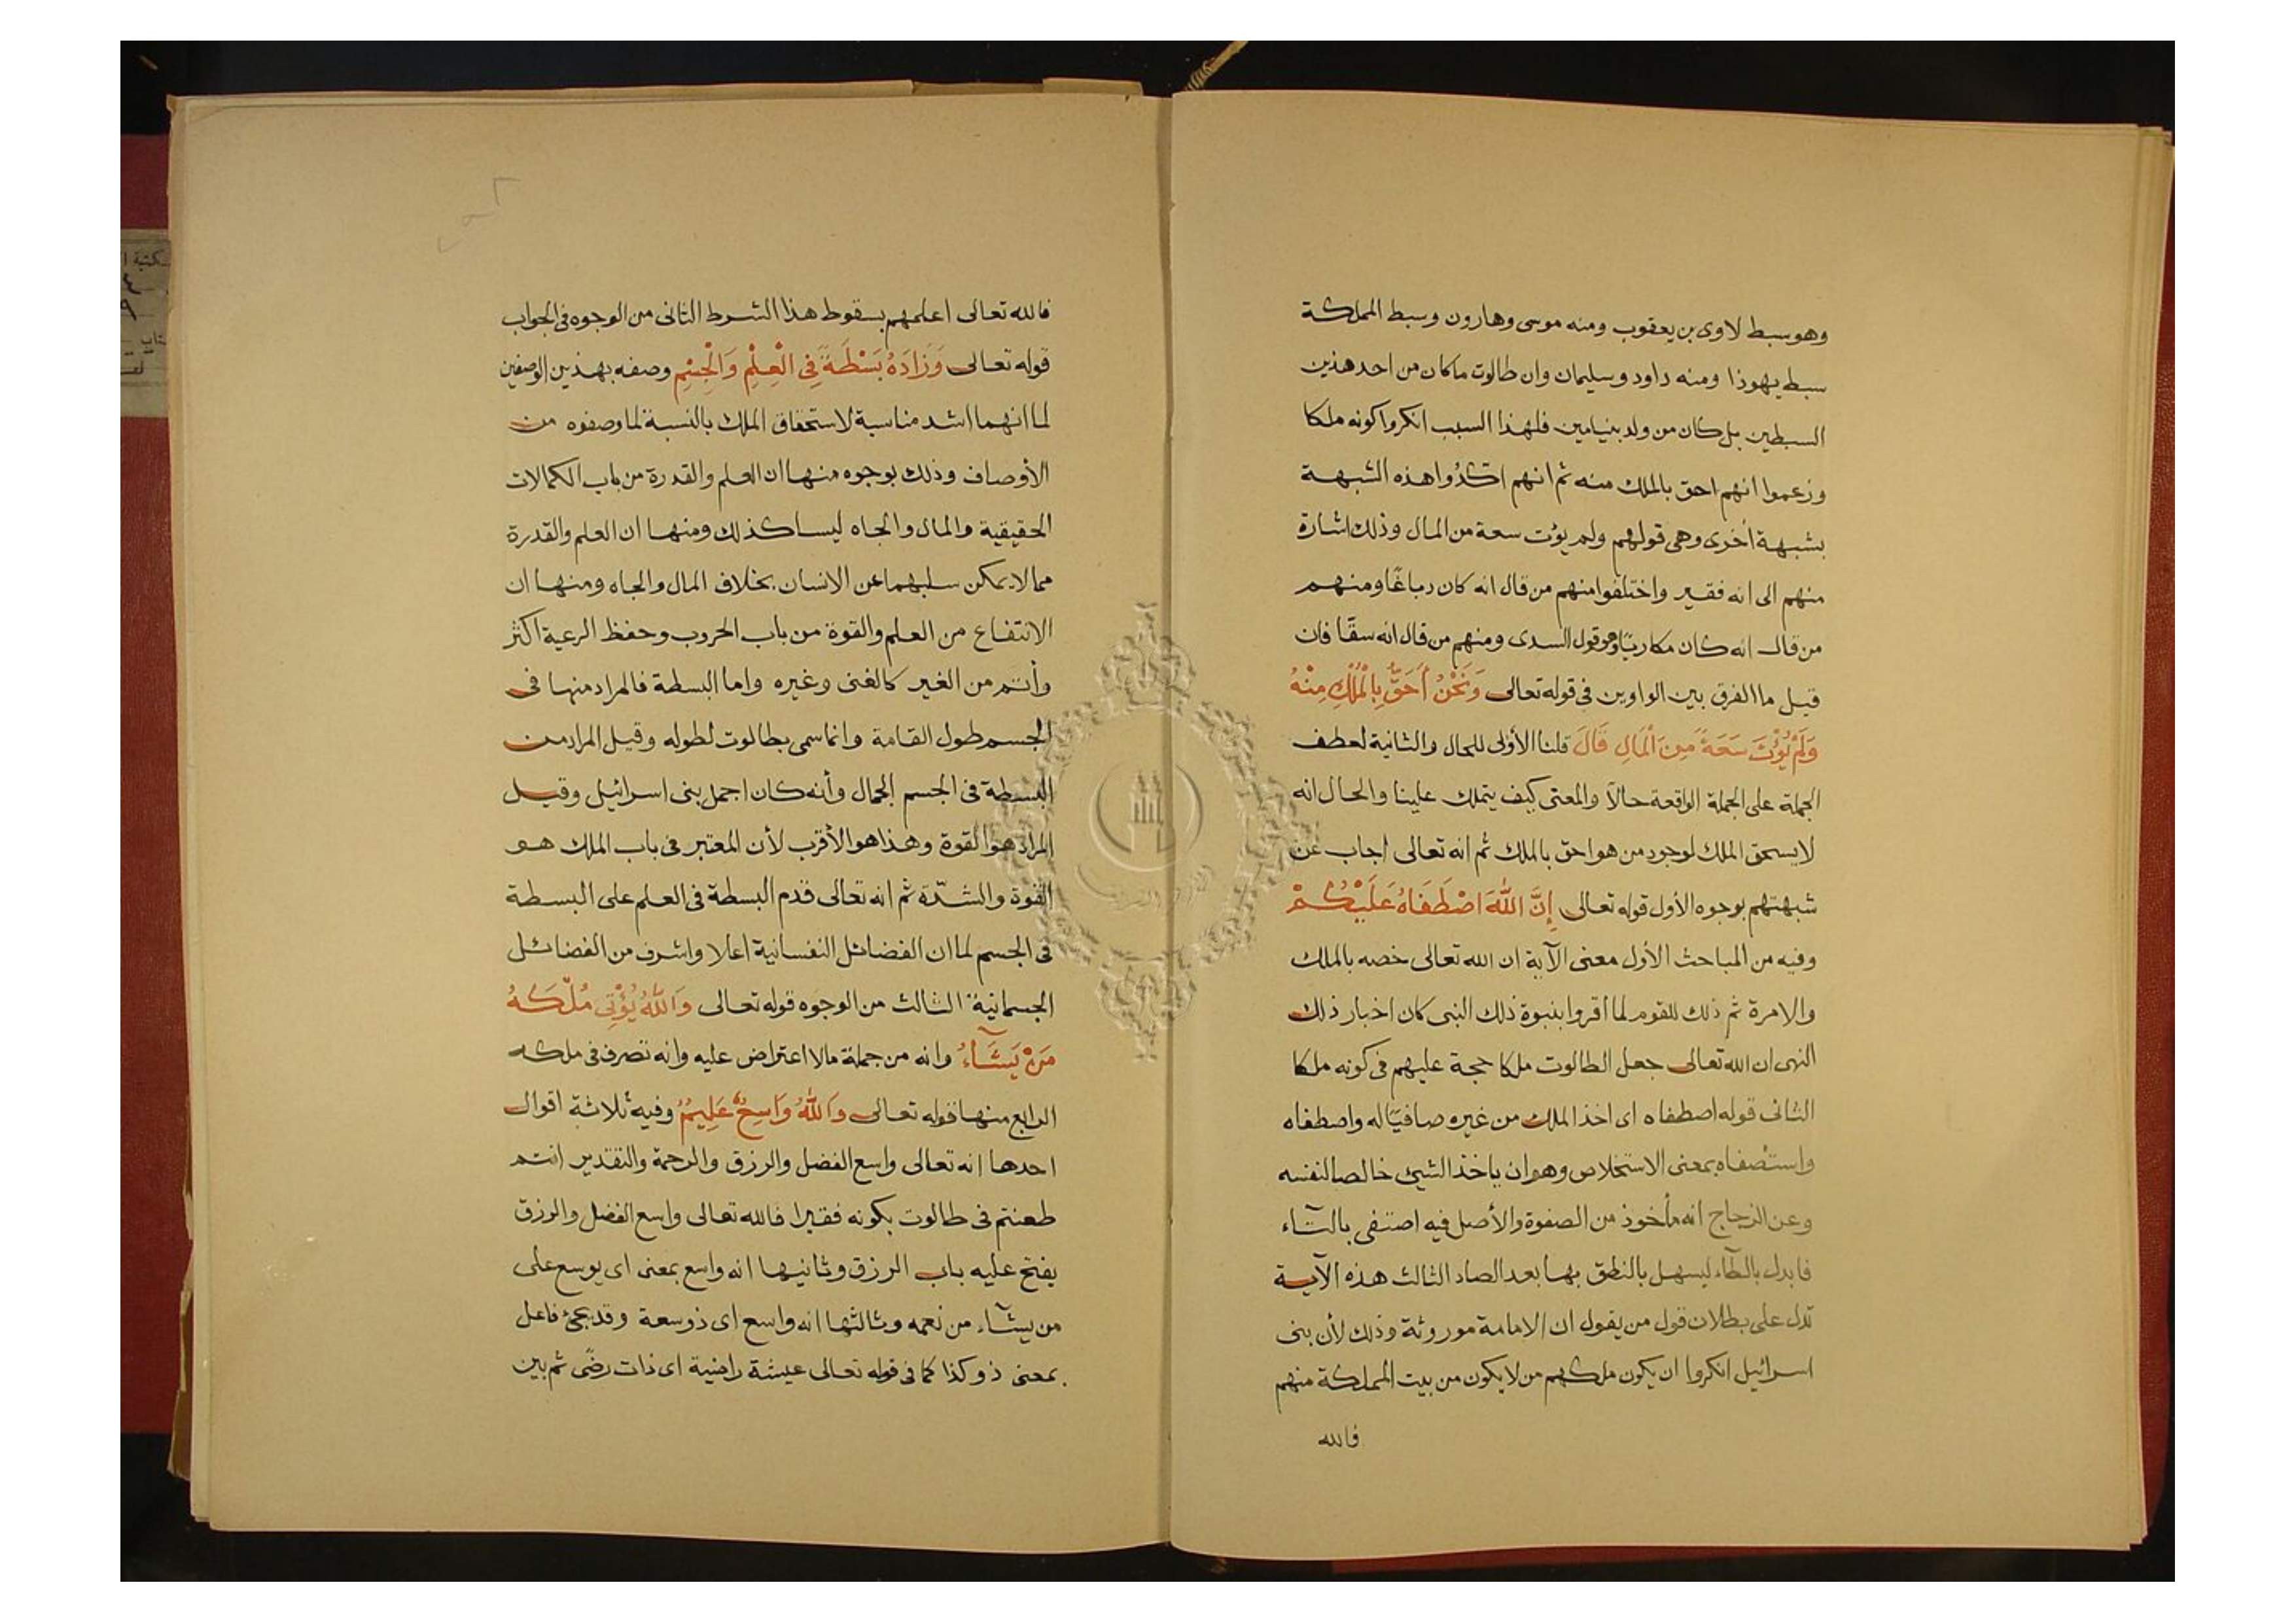 وهو سبط لاوى بن يعقوب ومنه موسى وهارون وسبط المملكة
سبط يهوذا ومنه داود وسليمان وان طالوت ما كان من احد هذين
السبطين بل كان من ولد بنيامين فلهذا السبب انكروا كونه ملكا
وزعموا انهم احق بالملك منه ثم انهم اكدوا هذه الشبهة
بشبهة أخرى وهى قولهم ولم يؤت سعة من المال وذلك اشارة
منهم الى انه فقير واختلفوا منهم من قال انه كان دباغًا ومنهم
من قال انه كان مكاريًا وهو قول السدى ومنهم من قال انه سقّا فان
قيل ما الفرق بين الواوين فى قوله تعالى وَنَحْنُ أَحَقُّ بِالْمُلْكِ مِنْهُ
وَلَمْ يُؤْتَ سَعَةً مِنَ الْمَالِ قَالَ قلنا الأولى للحال والثانية لعطف
الجملة على الجملة الواقعة حالاً والمعنى كيف يتملك علينا والحال انه
لا يستحق الملك لوجود من هو احق بالملك ثم انه تعالى اجاب عن
شبهتهم بوجوه الأول قوله تعالى إِنَّ اللَّهَ اصْطَفَاهُ عَلَيْكُمْ
وفيه من المباحث الأول معنى الآية ان الله تعالى خصه بالملك
والامرة ثم ذلك للقوم لما أقروا بنبوة ذلك النبى كان اخبار ذلك
النبى ان الله تعالى جعل الطالوت ملكا حجة عليهم فى كونه ملكا
الثانى قوله اصطفاه اى اخذ الملك من غيره صافيًا له واصطفاه
واستصفاه بمعنى الاستخلاص وهو ان ياخذ الشيئ خالصا لنفسه
وعن الزجاج انه مأخوذ من الصفوة والأصل فيه اصتفى بالتآء
فابدل بالطآء ليسهل بالنطق بها بعد الصاد الثالث هذه الآية
تدل على بطلان قول من يقول ان الامامة موروثة وذلك لأن بنى
اسرائيل انكروا ان يكون ملكهم من لا يكون من بيت المملكة منهم
فالله
فالله تعالى اعلمهم بسقوط هذا الشرط الثانى من الوجوه فى الجواب
قوله تعالى وَزَادَهُ بَسْطَةً فِى الْعِلْمِ وَالْجِسْمِ وصفه بهذين الوصفين
لما انهما اشد مناسبة لاستحقاق الملك بالنسبة لما وصفوه من
الأوصاف وذلك بوجوه منها ان العلم والقدرة من باب الكمالات
الحقيقية والمال والجاه ليسا كذلك ومنها ان العلم والقدرة
مما لا يمكن سلبهما عن الانسان بخلاف المال والجاه ومنها ان
الانتفاع من العلم والقوة من باب الحروب وحفظ الرعية اكثر
وأتم من الغير كالغنى وغيره واما البسطة فالمراد منها فى
الجسم طول القامة وانما سمى بطالوت لطوله وقيل المراد من
البسطة فى الجسم الجمال وأنه كان اجمل بنى اسرائيل وقيل
المراد هو القوة وهذا هو الأقرب لأن المعتبر فى باب الملك هو
القوة والشدّة ثم انه تعالى قدم البسطة فى العلم على البسطة
فى الجسم لما ان الفضائل النفسانية اعلا واشرف من الفضائل
الجسمانية الثالث من الوجوه قوله تعالى وَاللَّهُ يُؤْتِى مُلْكَهُ
مَنْ يَشَآءُ وانه من جملة مالا اعتراض عليه وانه تصرف فى ملكه
الرابع منها قوله تعالى وَاللَّهُ وَاسِعٌ عَلِيمٌ وفيه ثلاثة اقوال
احدها انه تعالى واسع الفضل والرزق والرحمة والتقدير انتم
طعنتم فى طالوت بكونه فقيرا فالله تعالى واسع الفضل والرزق
يفتح عليه باب الرزق وثانيها انه واسع بمعنى اى يوسع على
من يشآء من نعمه وثالثها انه واسع اى ذو سعة وقد يجئ فاعل
بمعنى ذو كذا كما فى قوله تعالى عيشة راضية اى ذات رضًى ثم بين